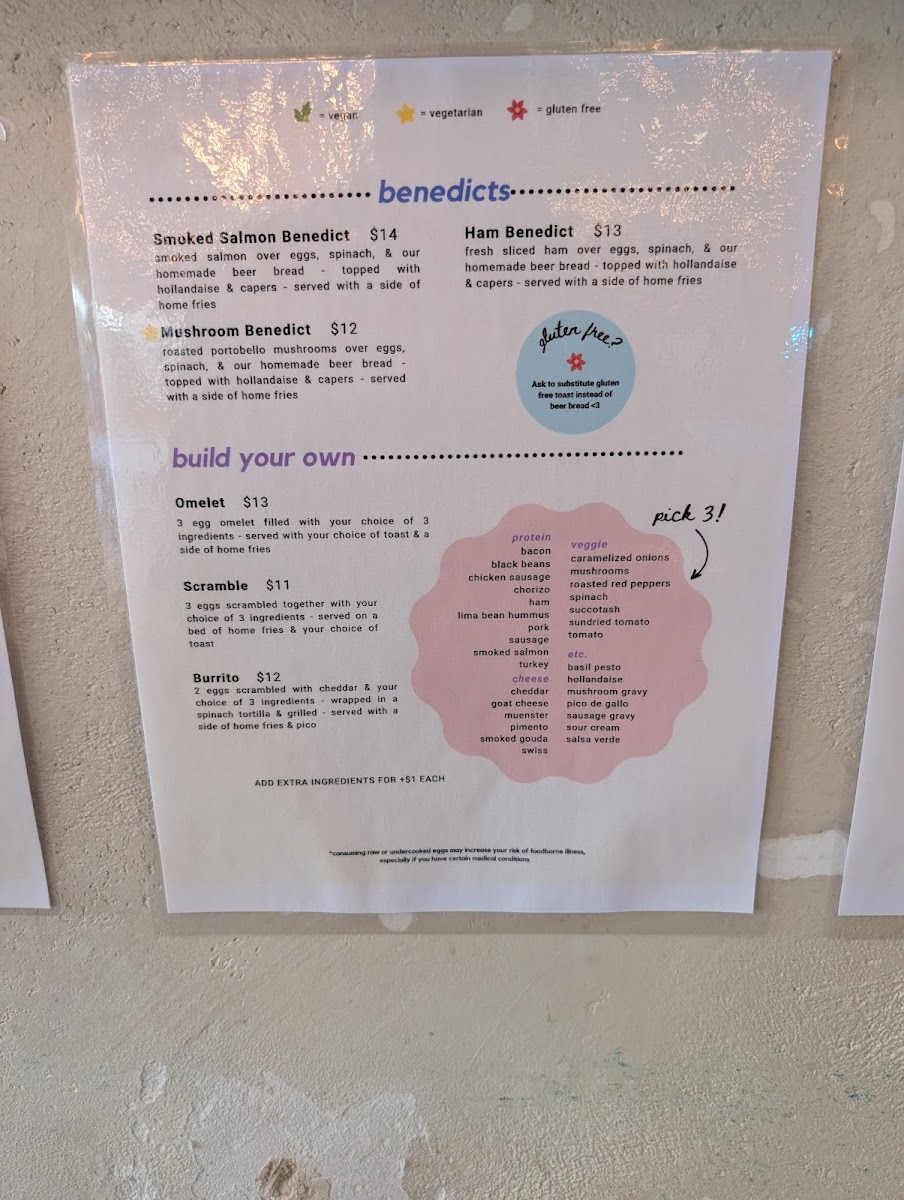 = vegan = vegetarian = gluten free
benedicts
Smoked Salmon Benedict $14
smoked salmon over eggs, spinach, & our
homemade beer bread - topped with
hollandaise & capers - served with a side of
home fries
Mushroom Benedict $12
roasted portobello mushrooms over eggs,
spinach, & our homemade beer bread -
topped with hollandaise & capers - served
with a side of home fries
Ham Benedict $13
fresh sliced ham over eggs, spinach, & our
homemade beer bread - topped with hollandaise
& capers - served with a side of home fries
gluten free?
Ask to substitute gluten
free toast instead of
beer bread <3
build your own
Omelet $13
3 egg omelet filled with your choice of 3
ingredients - served with your choice of toast & a
side of home fries
Scramble $11
3 eggs scrambled together with your
choice of 3 ingredients - served on a
bed of home fries & your choice of
toast
Burrito $12
2 eggs scrambled with cheddar & your
choice of 3 ingredients - wrapped in a
spinach tortilla & grilled - served with a
side of home fries & pico
pick 3!
protein
bacon
black beans
chicken sausage
chorizo
ham
lima bean hummus
pork
sausage
smoked salmon
turkey
cheese
cheddar
goat cheese
muenster
pimento
smoked gouda
swiss
veggie
caramelized onions
mushrooms
roasted red peppers
spinach
succotash
sundried tomato
tomato
etc.
basil pesto
hollandaise
mushroom gravy
pico de gallo
sausage gravy
sour cream
salsa verde
ADD EXTRA INGREDIENTS FOR +$1 EACH
*consuming raw or undercooked eggs may increase your risk of foodborne illness,
especially if you have certain medical conditions